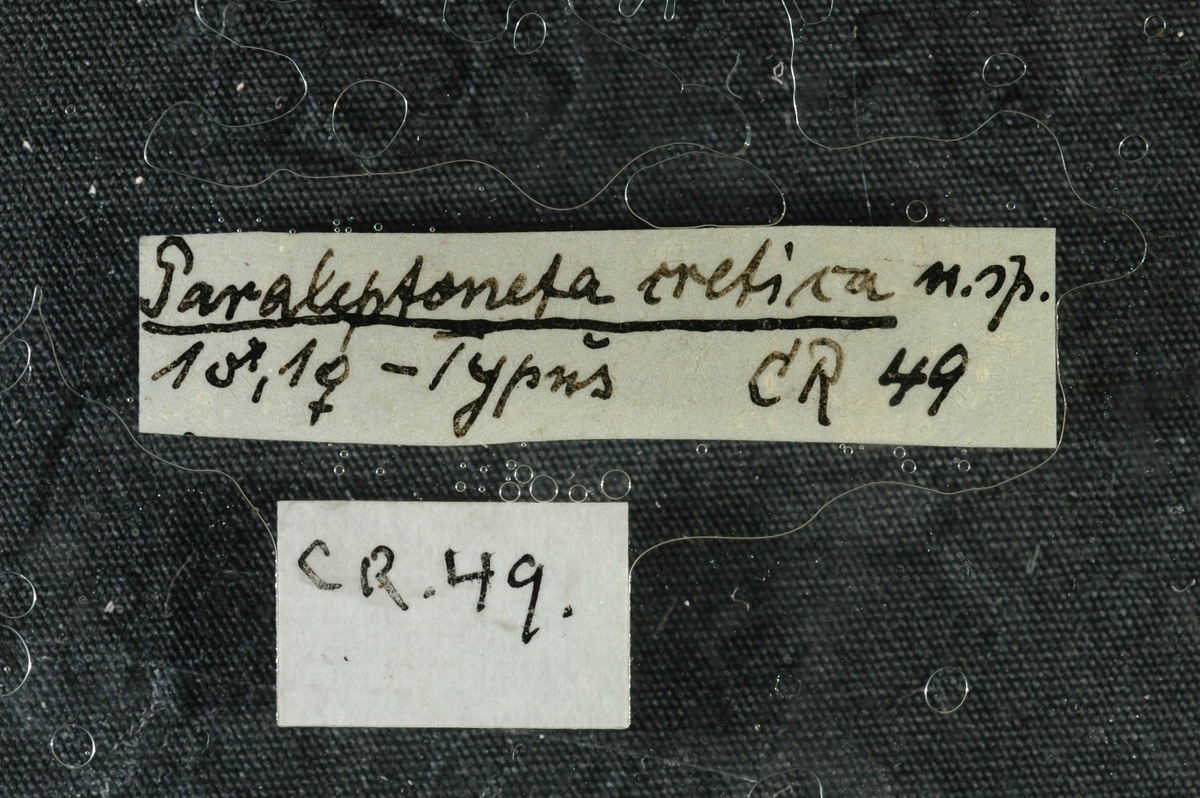 Paraleptoneta cretica n.sp.
1♂, 1♀ – Typus CR 49
CR. 49.